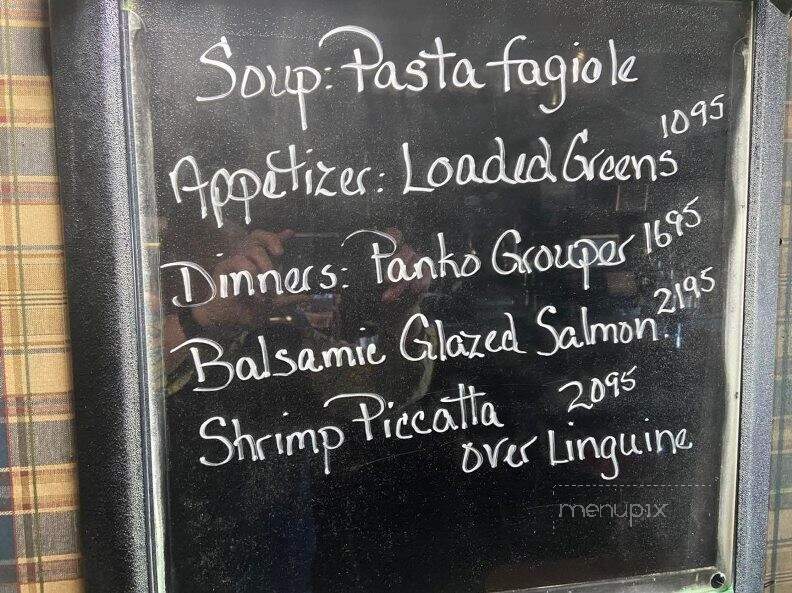 Soup: Pasta fagiole
Appetizer: Loaded Greens 1095
Dinners: Panko Grouper 1695
Balsamic Glazed Salmon 2195
Shrimp Piccatta 2095
over Linguine
menupix